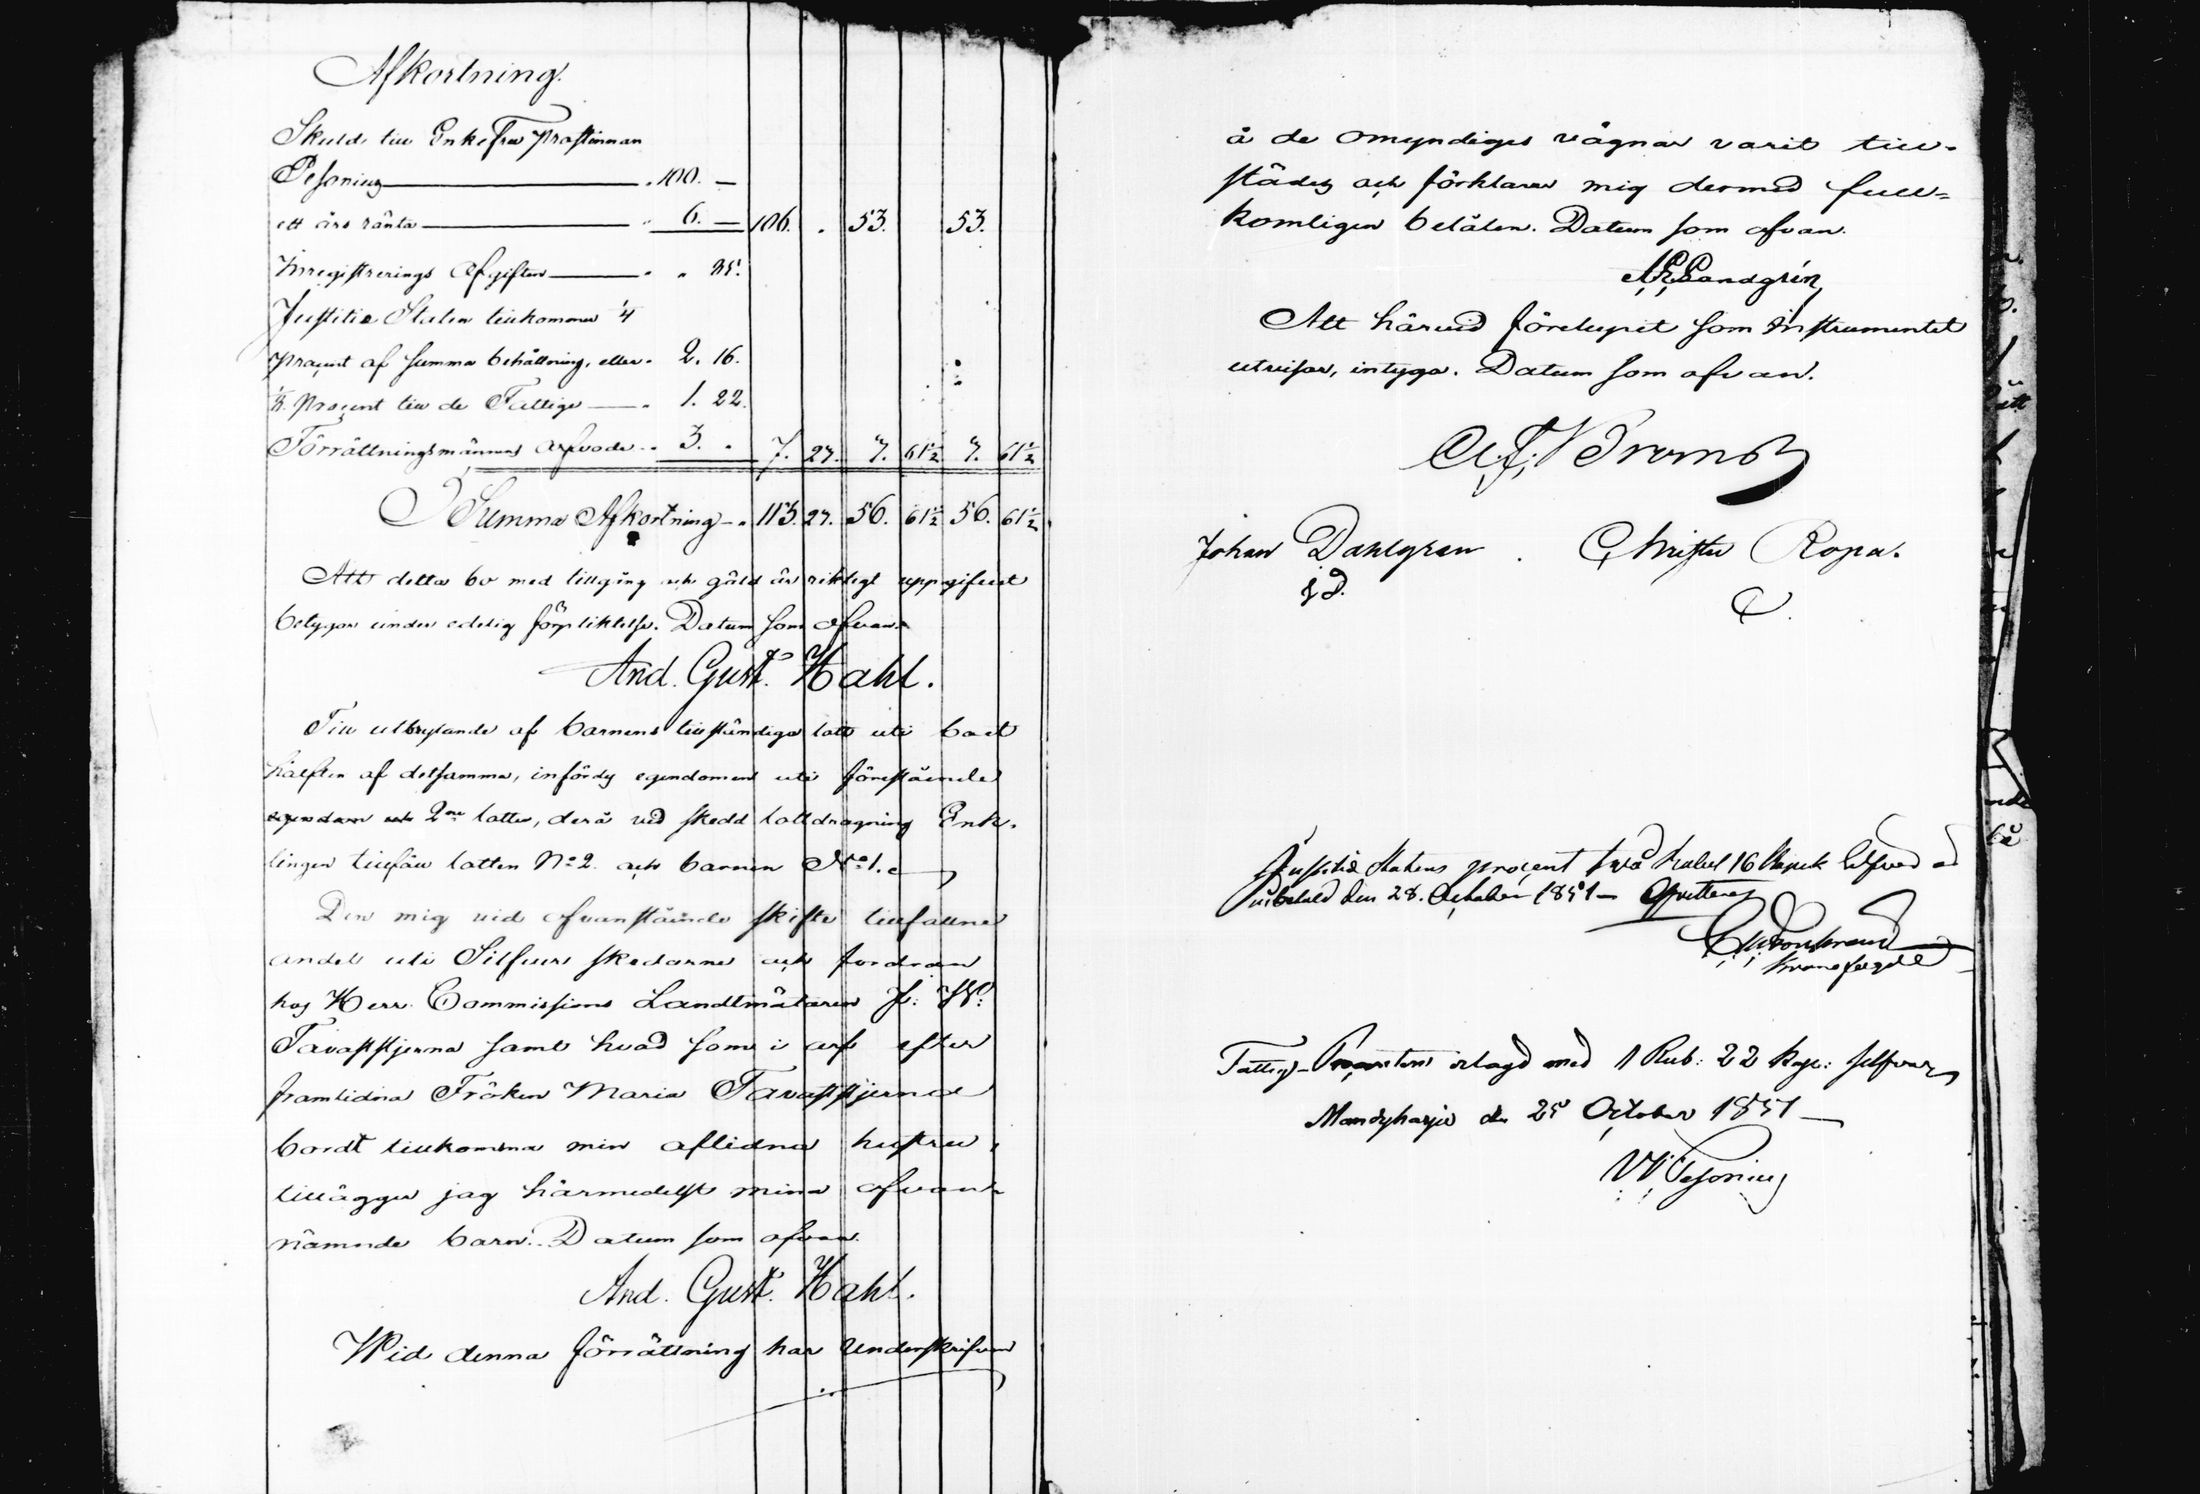 Afkortning.
Skuld till Enkefru Prostinnan
Pesonius " 100. —
ett års ränta " 6. — 106. . 53. 53.
Inregistrerings Afgiften " " 95.
Justitie Staten tillkommer ¼
procent af summa behållning, eller " 2. 16.
procent till de Fattige " 1. 22.
Förrättningsmännens Arfvode " 3. " 7. 27. 3. 61½ 3. 61½
Summa Afkortning " 113. 27. 56. 61½ 56. 61½
Att detta bo med tillgång och gäld är riktigt uppgifvet
betygar under edelig förpliktelse. Datum som ofvan.
And. Gust. Hahl.
Till utbrytande af barnens tillständiga lott uti boet
hälften af detsamma, infördes egendomen uti förestående
2ne lotter, derå vid skedd lottdragning Enk-
lingen tillföll lotten No 2. och barnen No 1.
Den mig vid ofvanstående skifte tillfallne
andel uti Silfver skedarne och fordran
hos Herr Commissions Landtmätaren
Tavaststjerna samt hvad som i arf efter
framlidna Fröken Maria Tavaststjerna
bordt tillkomma min aflidna hustru,
tillägger jag härmedelst mina ofvan-
nämnde barn. Datum som ofvan.
And. Gust. Hahl.
Wid denna förrättning har Underskrifven
å de omyndiges vägnar varit till-
städes och förklarar mig dermed full-
komligen belåten. Datum som ofvan.
Sandgrén
Att härvid förelupit som Instrumentet
utvisar, intyga. Datum som ofvan.
Johan Dahlgren. Christer Ropa.
Justitiæ Statens procent två Rubel 16 Kopek Silfver är
inbetald den 28. October 1851 — Qvitteras
Kronofogde
Fattig-Procenten erlagd med 1 Rub: 22 kop: silfver
Mandyharju den 25 October 1851 —
W. Pesonius